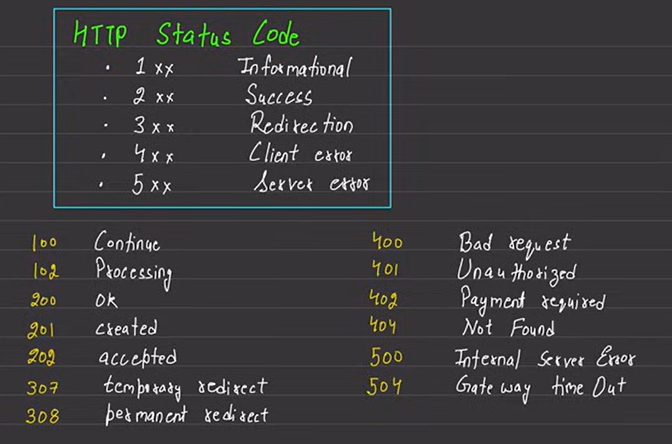 HTTP Status Code
· 1xx Informational
· 2xx Success
· 3xx Redirection
· 4xx Client error
· 5xx Server error
100 Continue
102 Processing
200 OK
201 created
202 accepted
307 temporary redirect
308 permanent redirect
400 Bad request
401 Unauthorized
402 Payment required
404 Not Found
500 Internal Server Error
504 Gateway time Out